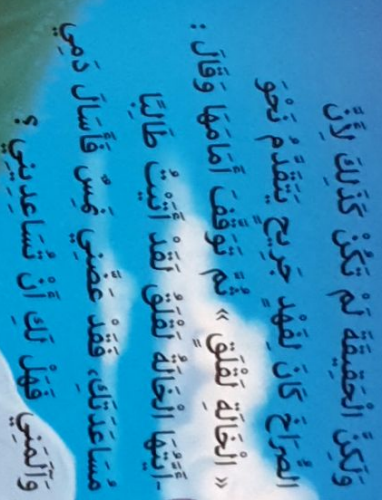 وَلَكِنَّ الْحَقِيقَةَ لَمْ تَكُنْ كَذَلِكَ لِأَنَّ
الصُّرَاخَ كَانَ لِفَهْدٍ جَرِيحٍ يَتَقَدَّمُ نَحْوَ
« الْخَالَةِ لَقْلَقٍ » ثُمَّ تَوَقَّفَ أَمَامَهَا وَقَالَ :
-أَيَّتُهَا الْخَالَةُ لَقْلَقُ لَقَدْ أَتَيْتُ طَالِبًا
مُسَاعَدَتَكِ، فَقَدْ عَضَّنِي نِمْسٌ فَأَسَالَ دَمِي
وَآلَمَنِي فَهَلْ لَكِ أَنْ تُسَاعِدِينِي ؟